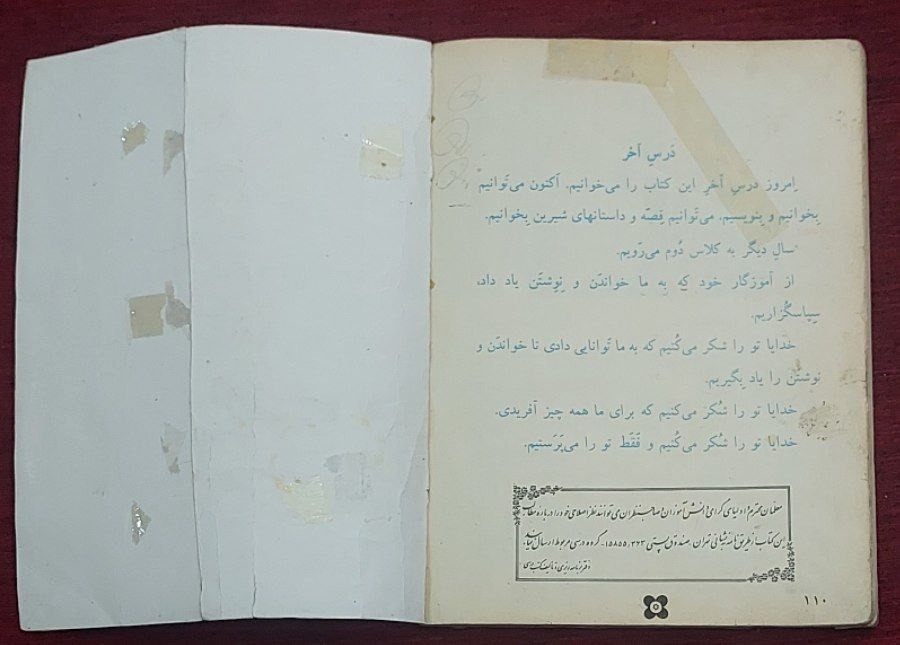 دَرسِ آخَر
اِمروز درسِ آخَرِ این کتاب را می‌خوانیم. اَکنون می‌تَوانیم
بِخوانیم و بِنویسیم. می‌تَوانیم قِصّه و داستانهای شیرین بِخوانیم.
سالِ دیگر به کلاس دُوم می‌رَویم.
از آموزگار خود کِه به ما خواندَن و نِوِشتَن یاد داد،
سِپاسگُزاریم.
خدایا تو را شکر می‌کُنیم که به ما تَوانایی دادی تا خواندَن و
نوشتَن را یاد بِگیریم.
خدایا تو را شُکر می‌کنیم که برای ما همه چیز آفریدی.
خدایا تو را شُکر می‌کُنیم و فَقَط تو را می‌پَرَستیم.
معلمان محترم اولیای گرامی دانش‌آموزان و صاحبنظران می‌توانند نظر اصلاحی خود را درباره مطالب
این کتاب از طریق نامه به نشانی تهران، صندوق پستی ۱۵۸۵۵/۳۶۳- گروه درسی مربوط ارسال نمایند
دفتر برنامه‌ریزی و تألیف کتب درسی
۱۱۰